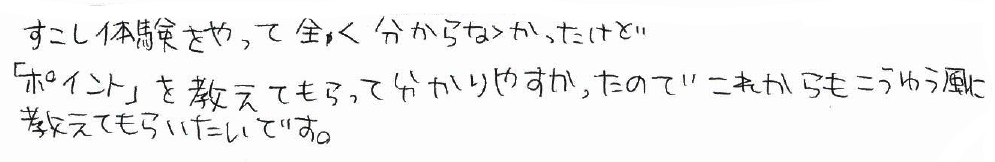 すこし体験をやって全く分からなかったけど
「ポイント」を教えてもらって分かりやすかったのでこれからもこうゆう風に
教えてもらいたいです。